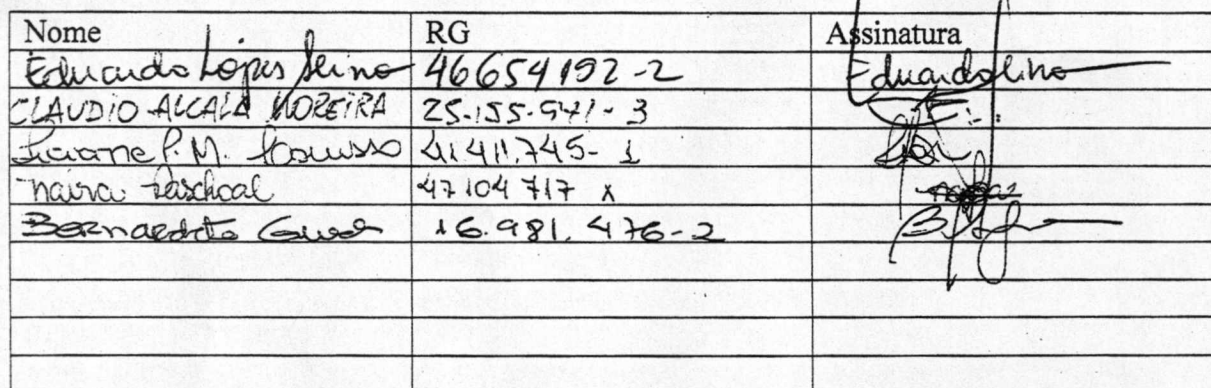 Nome RG Assinatura
Eduardo Lopes Lino 46654192-2 Eduardo Lino
CLAUDIO ALCALA MOREIRA 25-155-571-3
Luciane P. M. 41.411.745-1
Paschoal 47104717 X
Bernardete 16.981.476-2